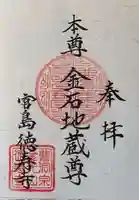 奉拝
本尊 金石地蔵尊
宮島徳寿寺